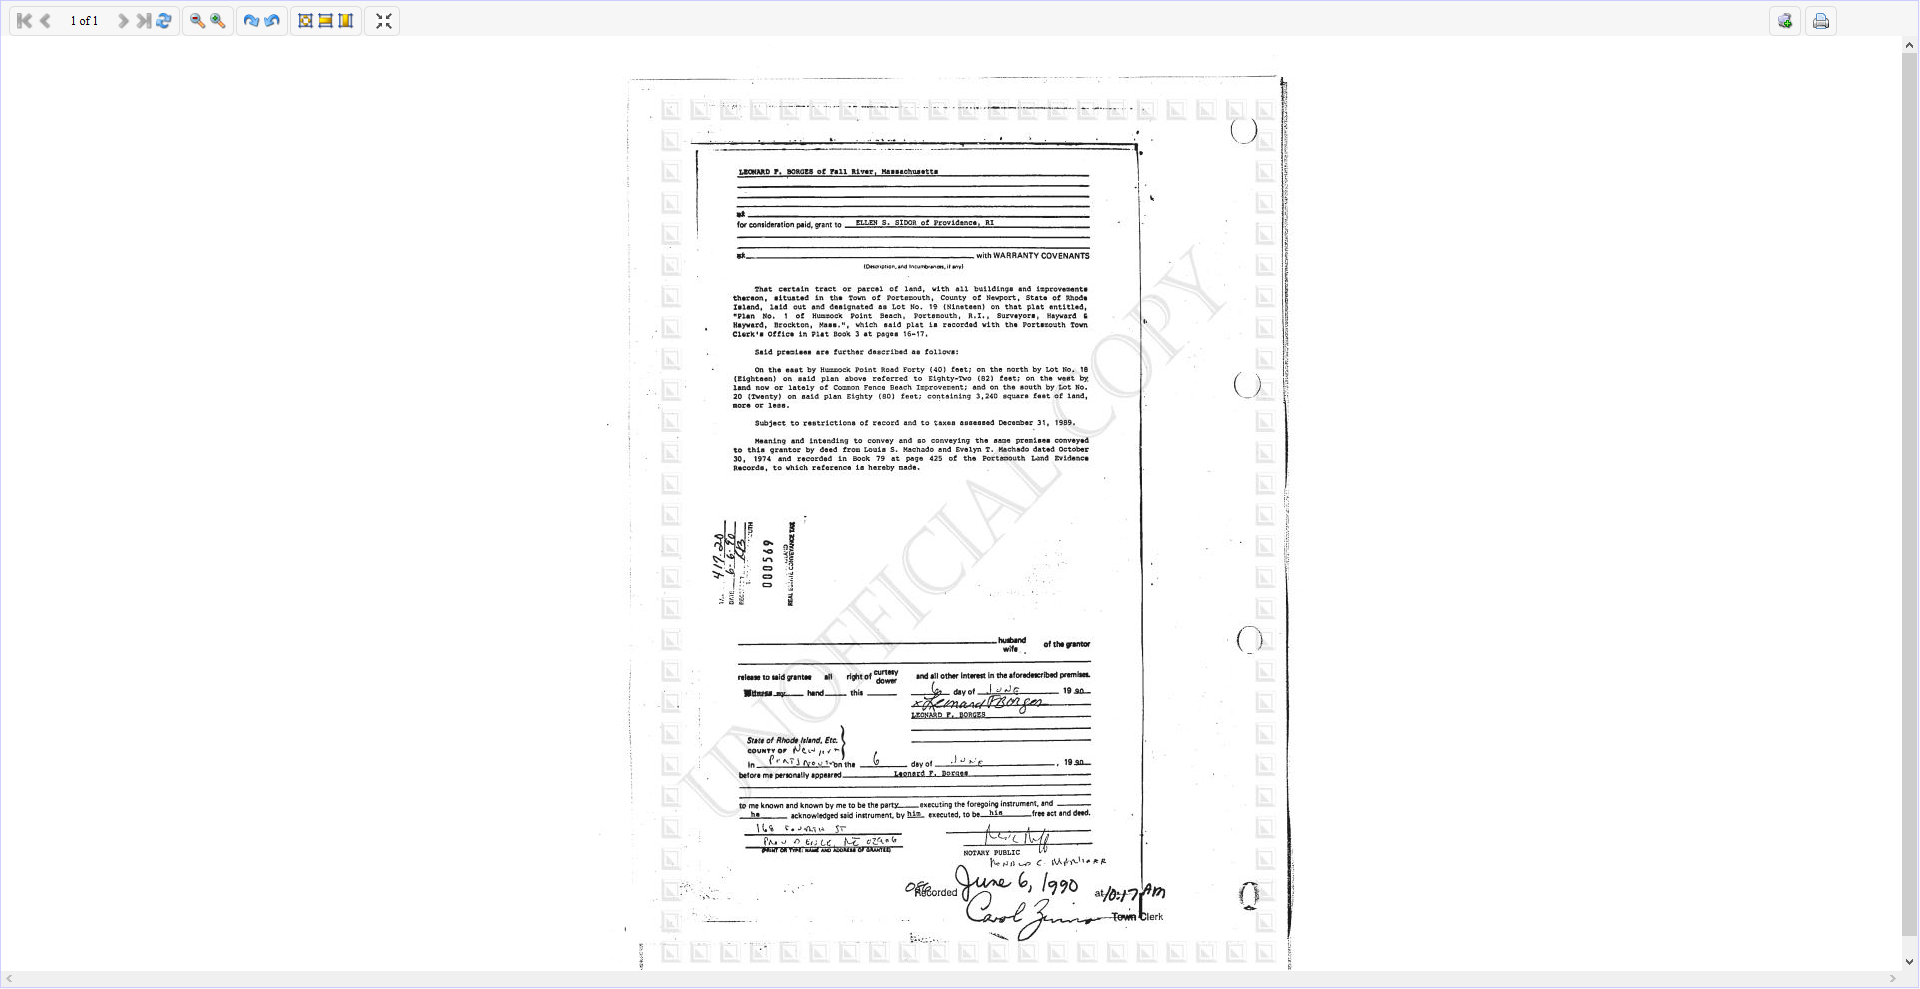 1 of 1
LEONARD F. BORGES of Fall River, Massachusetts
for consideration paid, grant to ELLEN S. SIDOR of Providence, RI
with WARRANTY COVENANTS
(Description, and Incumbrances, if any)
That certain tract or parcel of land, with all buildings and improvements
thereon, situated in the Town of Portsmouth, County of Newport, State of Rhode
Island, laid out and designated as Lot No. 19 (Nineteen) on that plat entitled,
"Plan No. 1 of Hummock Point Beach, Portsmouth, R.I., Surveyors, Hayward &
Hayward, Brockton, Mass.", which said plat is recorded with the Portsmouth Town
Clerk's Office in Plat Book 3 at pages 16-17.
Said premises are further described as follows:
On the east by Hummock Point Road Forty (40) feet; on the north by Lot No. 18
(Eighteen) on said plan above referred to Eighty-Two (82) feet; on the west by
land now or lately of Common Fence Beach Improvement; and on the south by Lot No.
20 (Twenty) on said plan Eighty (80) feet; containing 3,240 square feet of land,
more or less.
Subject to restrictions of record and to taxes assessed December 31, 1989.
Meaning and intending to convey and so conveying the same premises conveyed
to this grantor by deed from Louis S. Machado and Evelyn T. Machado dated October
30, 1974 and recorded in Book 79 at page 425 of the Portsmouth Land Evidence
Records, to which reference is hereby made.
417.20
DATE 6-6-90
000569
REAL ESTATE CONVEYANCE TAX
husband
wife of the grantor
release to said grantee all right of curtesy
dower and all other interest in the aforedescribed premises.
Witness my hand this 6 day of June 19 90
x Leonard F Borges
LEONARD F. BORGES
State of Rhode Island, Etc.
COUNTY OF Newport
In Portsmouth on the 6 day of June , 19 90
before me personally appeared Leonard F. Borges
to me known and known by me to be the party executing the foregoing instrument, and
he acknowledged said instrument, by him executed, to be his free act and deed.
168 Fourth St
Providence, RI 02906
(PRINT OR TYPE: NAME AND ADDRESS OF GRANTEE)
NOTARY PUBLIC
Recorded June 6, 1990 at 10:17 AM
Carol Town Clerk
UNOFFICIAL COPY